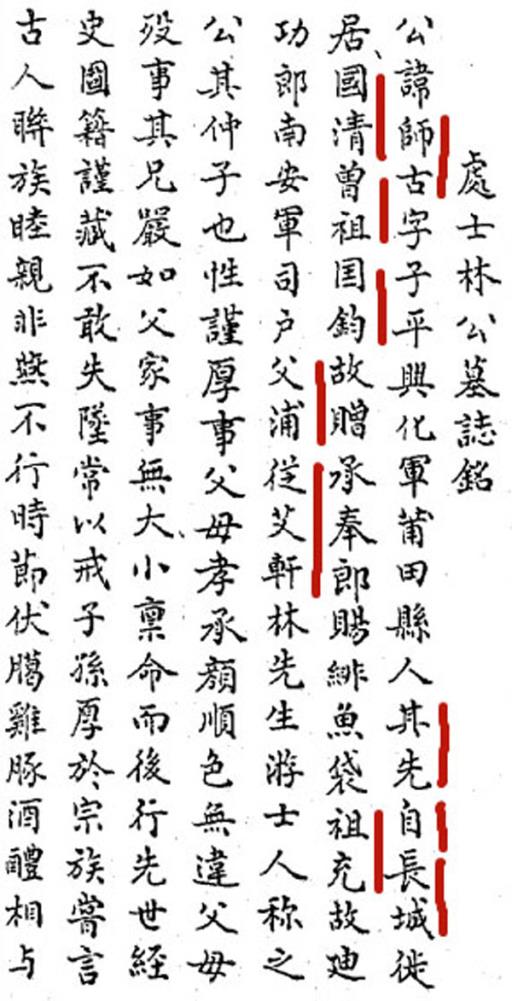 處士林公墓誌銘
公諱師古字子平興化軍莆田縣人其先自長城徙
居國清曾祖囯鈞故贈承奉郎賜緋魚袋祖充故迪
功郎南安軍司户父浦從艾軒林先生游士人称之
公其仲子也性謹厚事父母孝承顔順色無違父母
歿事其兄嚴如父家事無大小稟命而後行先世経
史圖籍謹藏不敢失墜常以戒子孫厚於宗族嘗言
古人聨族睦親非燕不行時節伏臈雞豚酒醴相与